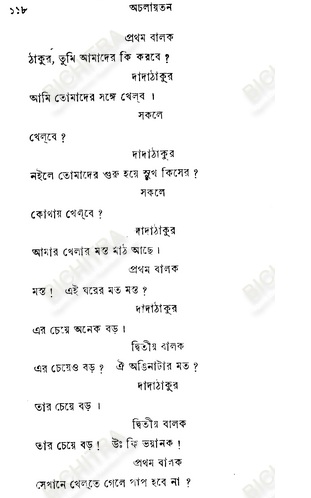 ১১৮ অচলায়তন
প্রথম বালক
ঠাকুর, তুমি আমাদের কি করবে ?
দাদাঠাকুর
আমি তোমাদের সঙ্গে খেল্‌ব ।
সকলে
খেল্‌বে ?
দাদাঠাকুর
নইলে তোমাদের গুরু হয়ে সুখ কিসের ?
সকলে
কোথায় খেল্‌বে ?
দাদাঠাকুর
আমার খেলার মস্ত মাঠ আছে ।
প্রথম বালক
মস্ত ! এই ঘরের মত মস্ত ?
দাদাঠাকুর
এর চেয়ে অনেক বড় ।
দ্বিতীয় বালক
এর চেয়েও বড় ? ঐ অঙিনাটার মত ?
দাদাঠাকুর
তার চেয়ে বড় ।
দ্বিতীয় বালক
তার চেয়ে বড় ! উঃ কি ভয়ানক !
প্রথম বালক
সেখানে খেল্‌তে গেলে পাপ হবে না ?
BICHITRA